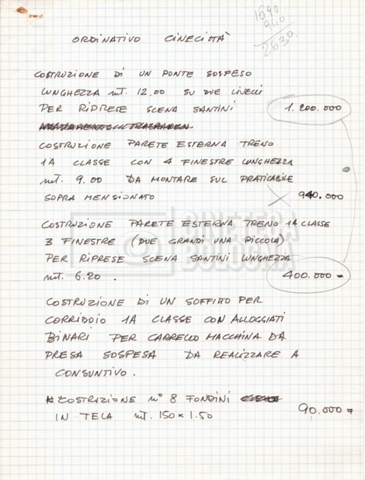 1690
940
2630
ORDINATIVO CINECITTÀ
COSTRUZIONE DI UN PONTE SOSPESO
LUNGHEZZA MT. 12.00 SU DUE LIVELLI
PER RIPRESE SCENA SANTINI 1.200.000
COSTRUZIONE PARETE ESTERNA TRENO
1A CLASSE CON 4 FINESTRE LUNGHEZZA
MT. 9.00 DA MONTARE SUL PRATICABILE
SOPRA MENSIONATO 940.000
COSTRUZIONE PARETE ESTERNA TRENO 1A CLASSE
3 FINESTRE (DUE GRANDI UNA PICCOLA)
PER RIPRESE SCENA SANTINI LUNGHEZZA
MT. 6.20. 400.000=
COSTRUZIONE DI UN SOFFITTO PER
CORRIDOIO 1A CLASSE CON ALLOGGIATI
BINARI PER CARRELLO MACCHINA DA
PRESA SOSPESA DA REALIZZARE A
CONSUNTIVO.
COSTRUZIONE N° 8 FONDINI
IN TELA MT. 150 x 1.50 90.000=